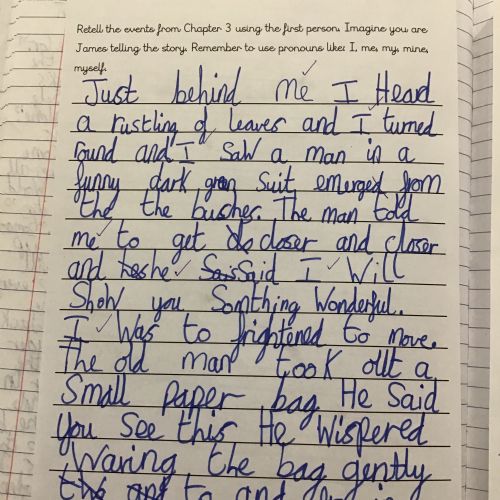 Retell the events from Chapter 3 using the first person. Imagine you are
James telling the story. Remember to use pronouns like: I, me, my, mine,
myself.
Just behind me I Heard
a rustling of leaves and I turned
round and I saw a man in a
funny dark green suit emerged from
the the bushes. The man told
me to get closer and closer
and he Said I Will
Show you Somthing Wonderful.
I Was to frightened to move.
The old man took out a
Small paper bag He Said
you See this He Wispered
Waving the bag gently
to and